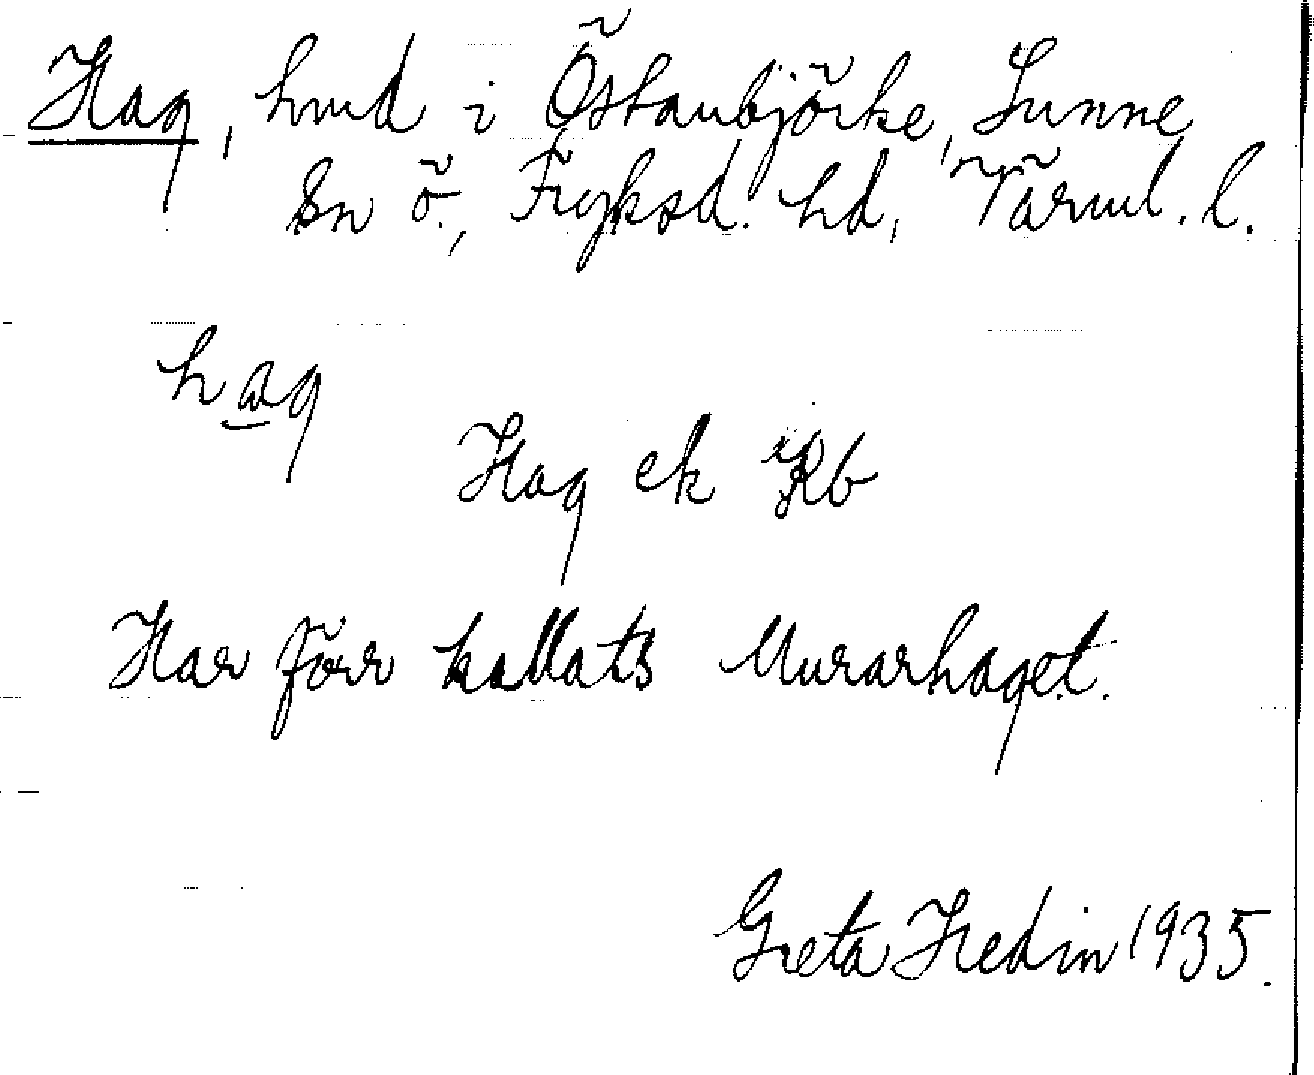 Hag, hmd i Östanbjörke, Sunne
sn ö., Fryksd. hd, Värml. l.
hag
Hag ek Rb
Har förr kallats Murarhaget.
Greta Hedin 1935.